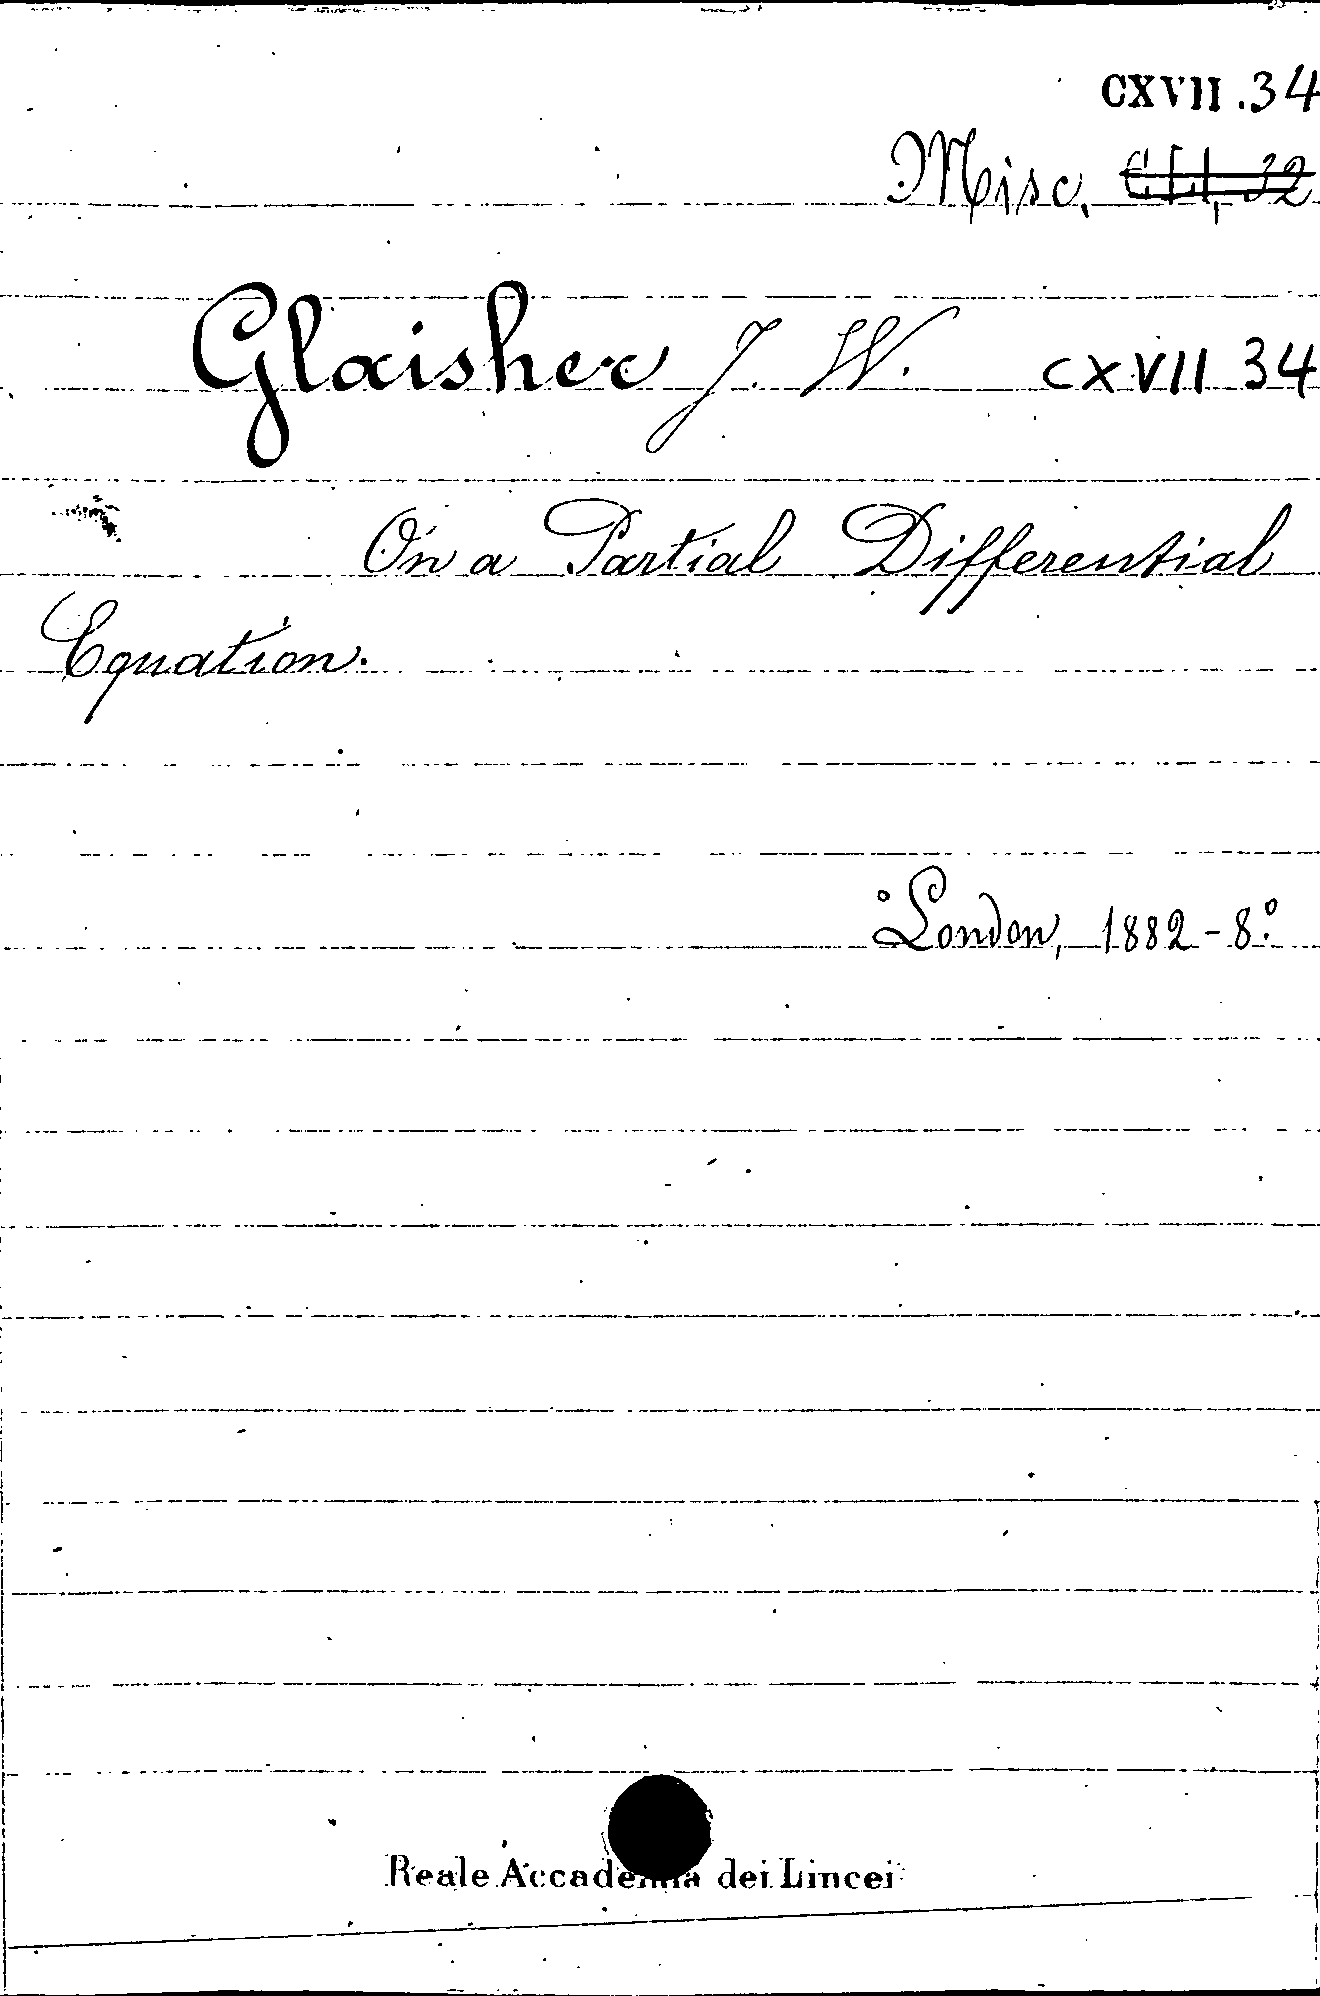 CXVII.34
Misc. 
Glaisher J. W. CXVII 34
On a Partial Differential
Equation.
London, 1882-8.º
Reale Accademia dei Lincei